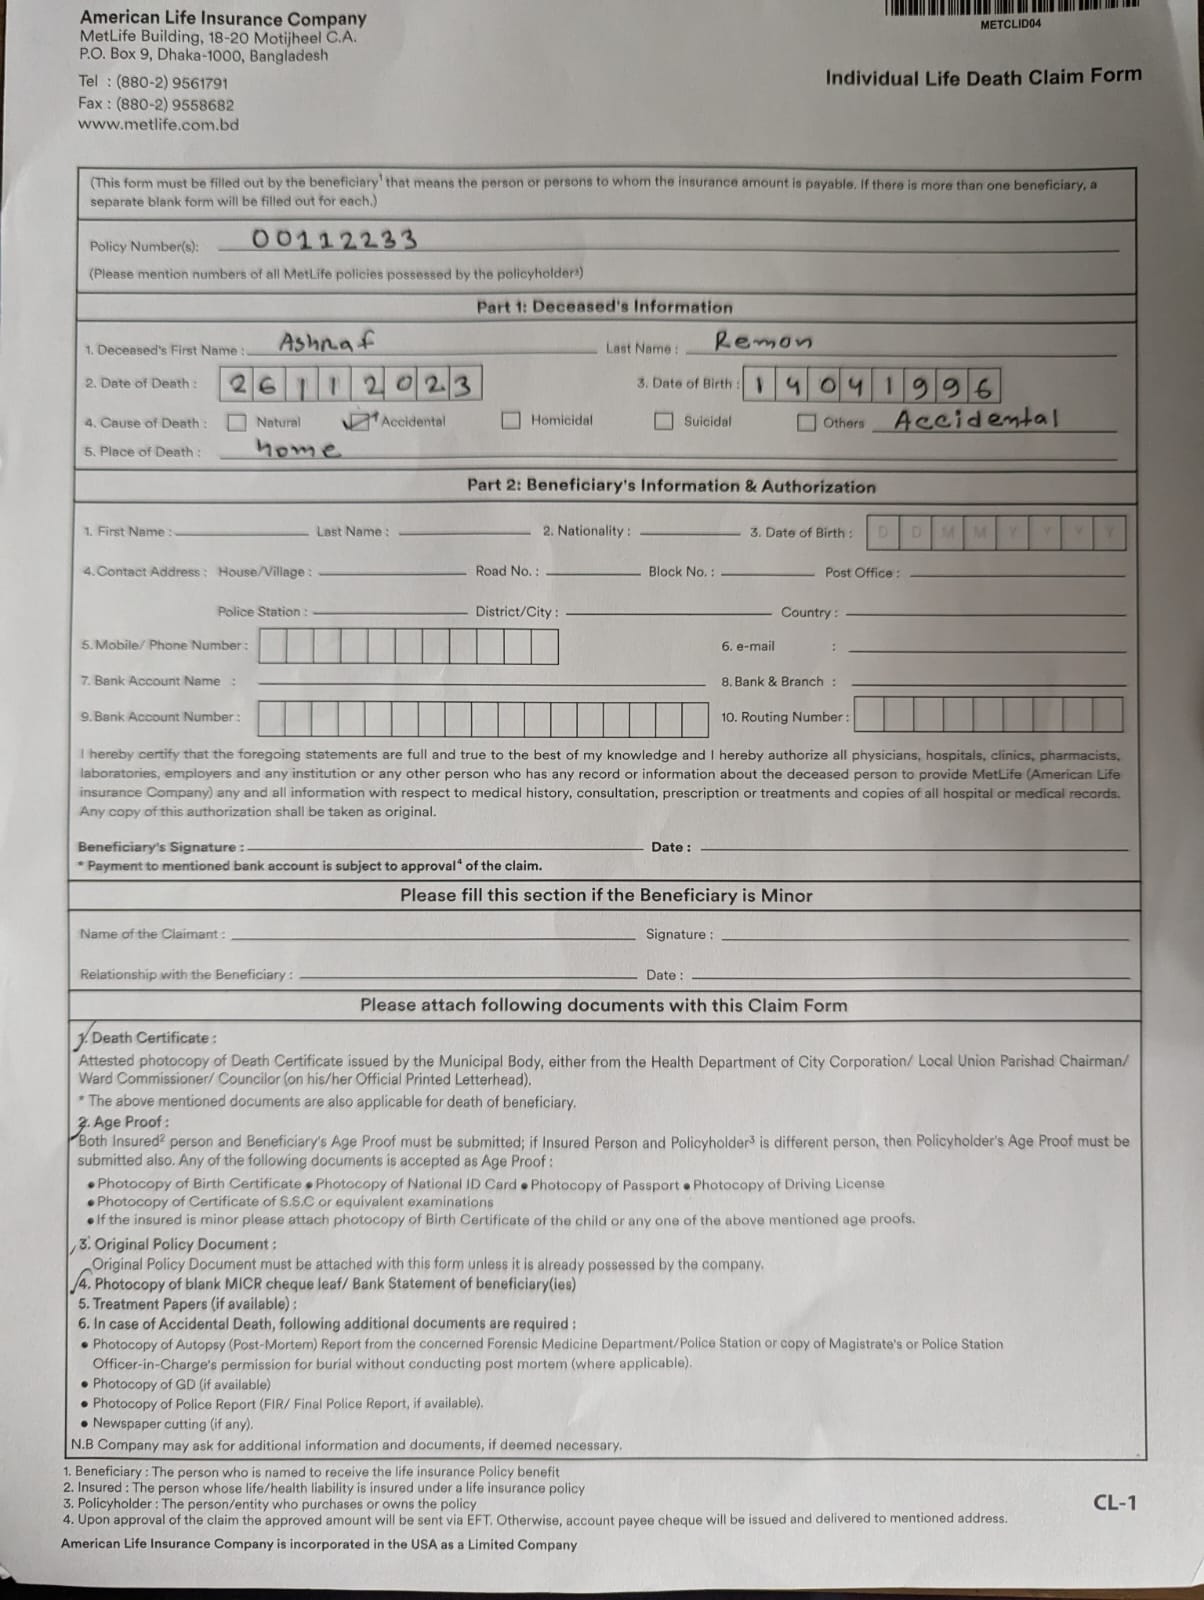 American Life Insurance Company
MetLife Building, 18-20 Motijheel C.A.
P.O. Box 9, Dhaka-1000, Bangladesh
Tel : (880-2) 9561791
Fax : (880-2) 9558682
www.metlife.com.bd
METCLID04
Individual Life Death Claim Form
(This form must be filled out by the beneficiary¹ that means the person or persons to whom the insurance amount is payable. If there is more than one beneficiary, a
separate blank form will be filled out for each.)
Policy Number(s): 00112233
(Please mention numbers of all MetLife policies possessed by the policyholder³)
Part 1: Deceased's Information
1. Deceased's First Name : Ashraf Last Name : Remon
2. Date of Death : 26112023 3. Date of Birth : 14041996
4. Cause of Death : Natural Accidental Homicidal Suicidal Others Accidental
5. Place of Death : home
Part 2: Beneficiary's Information & Authorization
1. First Name : Last Name : 2. Nationality : 3. Date of Birth : D D M M Y Y Y Y
4. Contact Address : House/Village : Road No. : Block No. : Post Office :
Police Station : District/City : Country :
5. Mobile/ Phone Number : 6. e-mail :
7. Bank Account Name : 8. Bank & Branch :
9. Bank Account Number : 10. Routing Number :
I hereby certify that the foregoing statements are full and true to the best of my knowledge and I hereby authorize all physicians, hospitals, clinics, pharmacists,
laboratories, employers and any institution or any other person who has any record or information about the deceased person to provide MetLife (American Life
insurance Company) any and all information with respect to medical history, consultation, prescription or treatments and copies of all hospital or medical records.
Any copy of this authorization shall be taken as original.
Beneficiary's Signature : Date :
* Payment to mentioned bank account is subject to approval⁴ of the claim.
Please fill this section if the Beneficiary is Minor
Name of the Claimant : Signature :
Relationship with the Beneficiary : Date :
Please attach following documents with this Claim Form
1. Death Certificate :
Attested photocopy of Death Certificate issued by the Municipal Body, either from the Health Department of City Corporation/ Local Union Parishad Chairman/
Ward Commissioner/ Councilor (on his/her Official Printed Letterhead).
* The above mentioned documents are also applicable for death of beneficiary.
2. Age Proof :
Both Insured² person and Beneficiary's Age Proof must be submitted; if Insured Person and Policyholder³ is different person, then Policyholder's Age Proof must be
submitted also. Any of the following documents is accepted as Age Proof :
● Photocopy of Birth Certificate ● Photocopy of National ID Card ● Photocopy of Passport ● Photocopy of Driving License
● Photocopy of Certificate of S.S.C or equivalent examinations
● If the insured is minor please attach photocopy of Birth Certificate of the child or any one of the above mentioned age proofs.
3. Original Policy Document :
Original Policy Document must be attached with this form unless it is already possessed by the company.
4. Photocopy of blank MICR cheque leaf/ Bank Statement of beneficiary(ies)
5. Treatment Papers (if available) :
6. In case of Accidental Death, following additional documents are required :
● Photocopy of Autopsy (Post-Mortem) Report from the concerned Forensic Medicine Department/Police Station or copy of Magistrate's or Police Station
Officer-in-Charge's permission for burial without conducting post mortem (where applicable).
● Photocopy of GD (if available)
● Photocopy of Police Report (FIR/ Final Police Report, if available).
● Newspaper cutting (if any).
N.B Company may ask for additional information and documents, if deemed necessary.
1. Beneficiary : The person who is named to receive the life insurance Policy benefit
2. Insured : The person whose life/health liability is insured under a life insurance policy
3. Policyholder : The person/entity who purchases or owns the policy
4. Upon approval of the claim the approved amount will be sent via EFT. Otherwise, account payee cheque will be issued and delivered to mentioned address.
CL-1
American Life Insurance Company is incorporated in the USA as a Limited Company